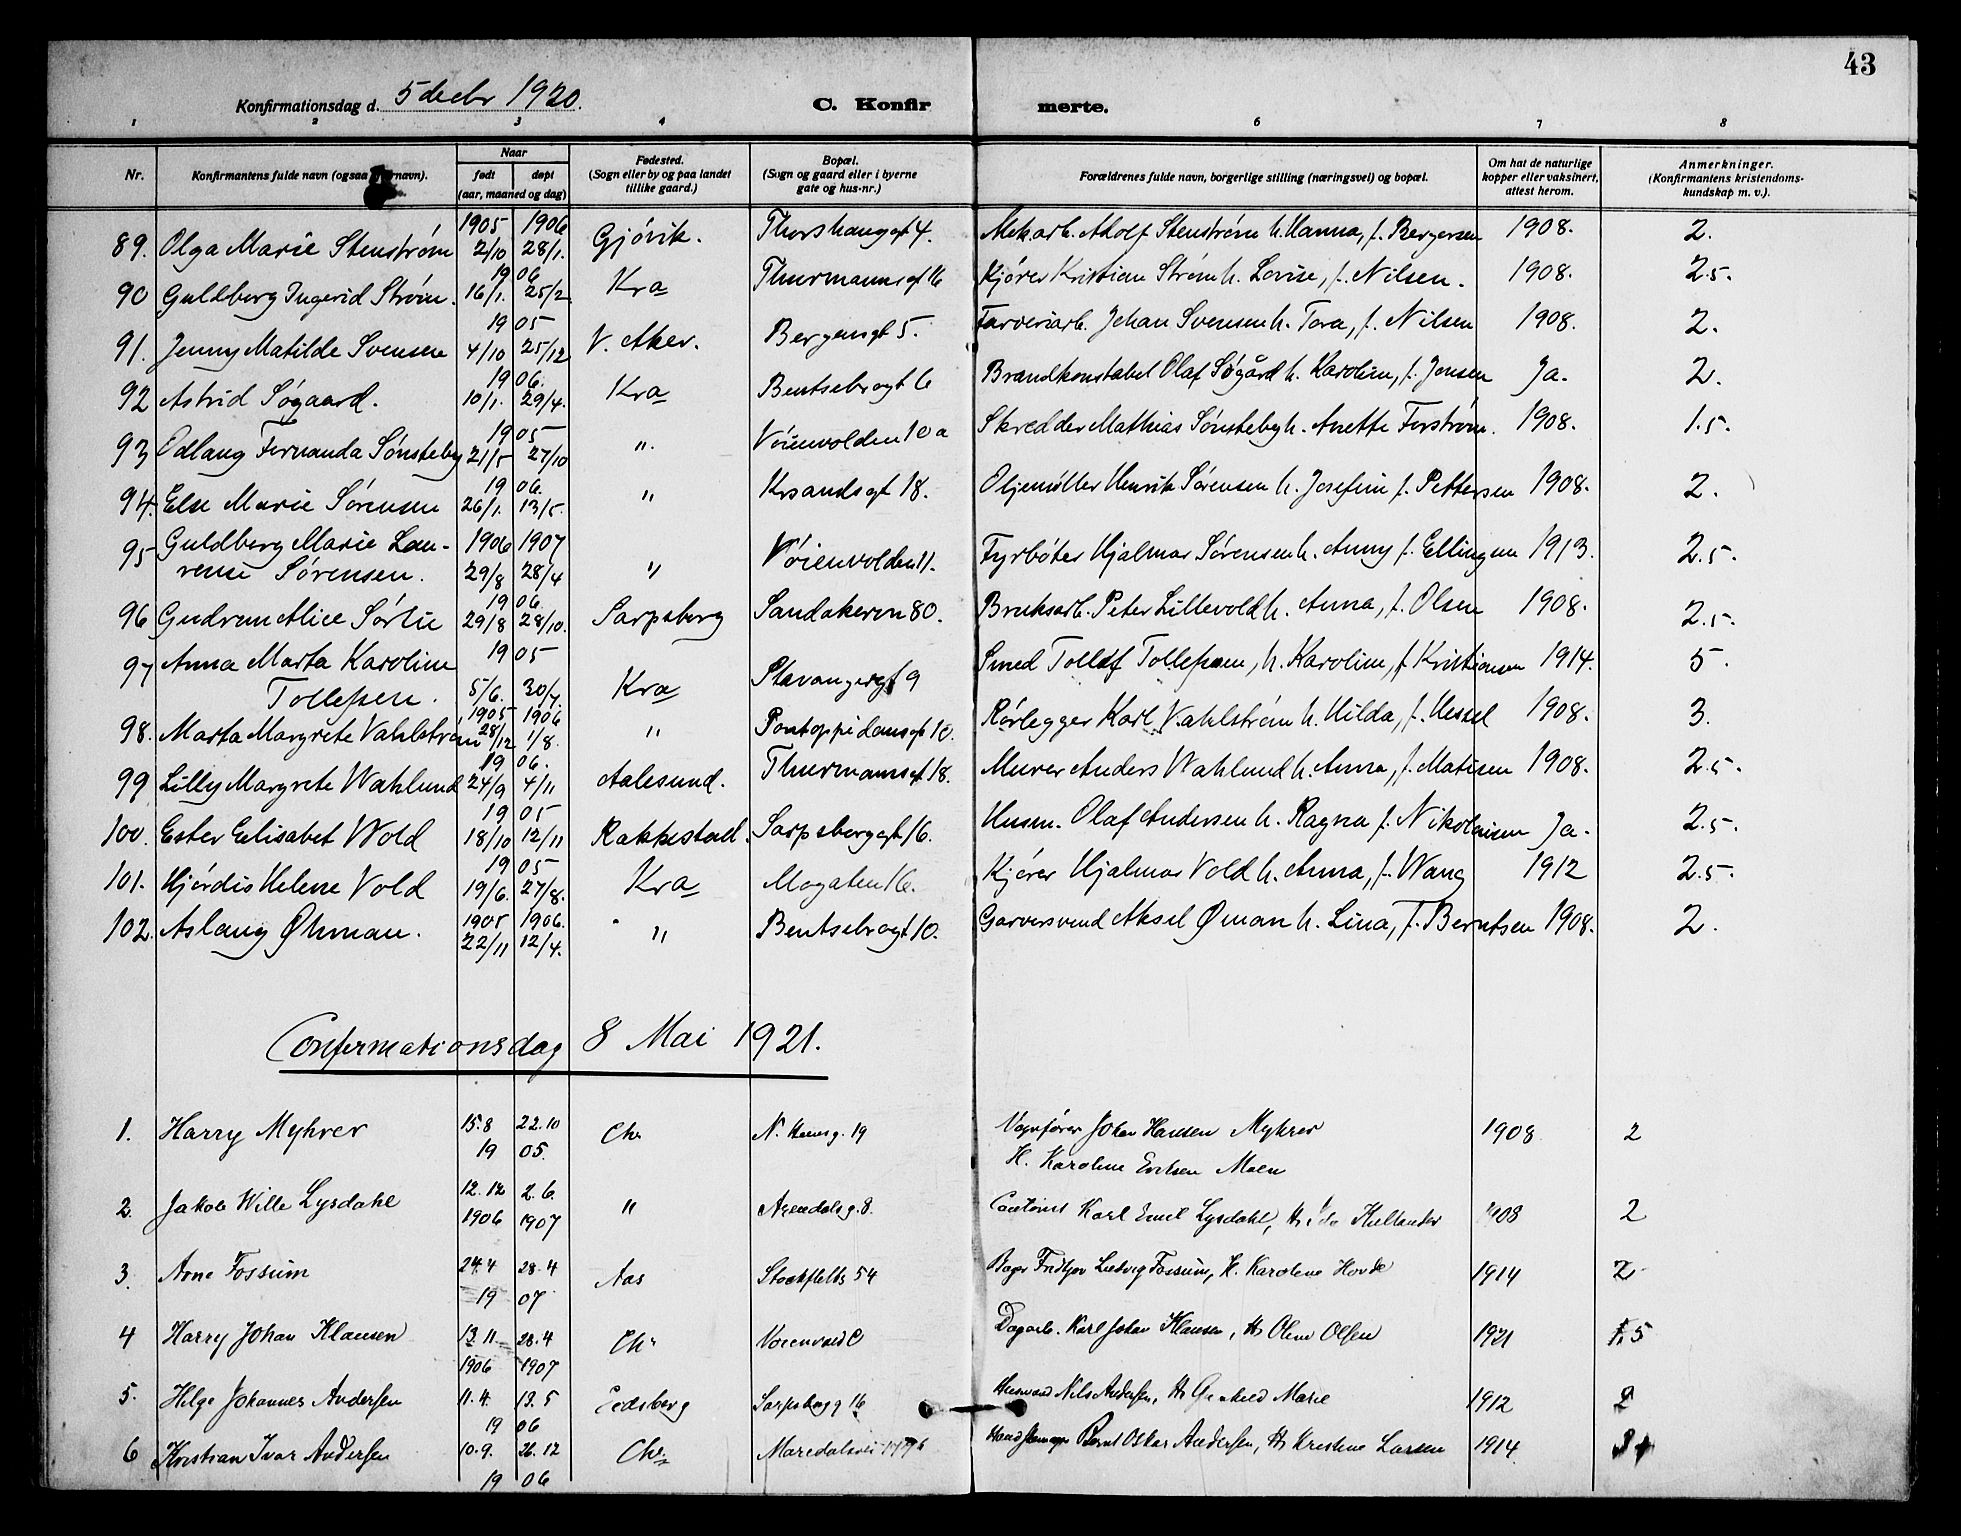 43
Konfirmationsdag d. 5 decbr 1920.
C. Konfir merte.
1 2 3 4 6 7 8
Nr. Konfirmantens fulde navn (ogsaa navn). Naar født døpt (aar, maaned og dag) Fødested. (Sogn eller by og paa landet tillike gaard.) Bopæl. (Sogn og gaard eller i byerne gate og hus-nr.) Forældrenes fulde navn, borgerlige stilling (næringsvei) og bopæl. Om hat de naturlige kopper eller vaksinert, attest herom. Anmerkninger. (Konfirmantens kristendoms-kundskap m. v.).
1905 1906
89. Olga Marie Stenstrøm 2/10 28/1. Gjøvik. Thorshauggt 4. Mek.arb. Adolf Stenstrøm h. Hanna, f. Bergersen 1908. 2.
19 06
90 Guldborg Ingerid Strøm. 16/1. 25/2 Kra Thurmannsgt 16 Kjører Kristian Strøm h. Lovise, f. Nilsen. 1908. 2.5.
19 05
91. Jenny Matilde Svensen 4/10 25/12 V. Aker. Bergensgt 5. Farveriarb. Johan Svensen h. Tora, f. Nilsen 1908. 2.
19 06.
92 Astrid Søgaard. 10/1. 29/4. Kra Bentsebrogt 6 Brandkonstabel Olaf Søgård h. Karoline, f. Jensen Ja. 2.
19 05
93 Odlaug Fernanda Sønsteby 21/5 27/10 ". Vøienvolden 10a Skredder Mathias Sønsteby h. Anette Forstrøm. 1908. 1.5.
19 06.
94. Else Marie Sørensen 26/1. 13/5. " Krsandsgt 18. Oljemøller Henrik Sørensen h. Josefine f. Pettersen 1908. 2.
95 Guldborg Marie Lau- 1906 1907
rense Sørensen. 29/8 28/4 " Vøienvolden 11. Fyrbøter Hjalmar Sørensen h. Anny f. Ellingsen 1913. 2.5.
19 06
96 Gudrun Alice Sørlie 29/8 28/10. Sarpsborg Sandakervn 80. Bruksarb. Peter Lillevold h. Anna, f. Olsen 1908. 2.5.
97 Anna Marta Karoline 19 05
Tollefsen. 5/6. 30/7. Kra Stavangergt 9 Smed Tollef Tollefsen, h. Karoline, f. Kristiansen 1914. 5.
1905 1906
98. Marta Margrete Vahlstrøm 28/12 1/8. " Pontoppidansgt 10. Rørlegger Karl Vahlstrøm h. Hilda, f. Hessel 1908. 3.
19 06.
99 Lilly Margrete Wahlund 24/9 4/11 Aalesund. Thurmannsgt 18. Murer Anders Wahlund h. Anna, f. Matisen 1908. 2.5.
19 05
100. Ester Elisabet Wold 18/10 12/11 Rakkestad. Sarpsborggt 16. Husm. Olaf Andersen h. Ragna f. Nikolaisen Ja. 2.5.
19 05
101. Hjørdis Helene Vold 19/6. 27/8. Kra Mogaten 16. Kjører Hjalmar Vold h. Anna, f. Wang 1912 2.5.
1905 1906.
102. Aslaug Øhman. 22/11 12/4. " Bentsebrogt 10. Garversvend Aksel Øman h. Lina, f. Berntsen 1908. 2.
Confirmationsdag 8 Mai 1921.
1. Harry Myhrer 15.8 22.10 Chr N. 19 Vognfører Johan Hansen Myhrer 1908 2
19 05. H. Karoline Eriksen Moen
2. Jakob Wille Lysdahl 12.12 2.6. " Arendalsg. 8. Karl Emil Lysdahl, H. Ida Kullander 1908 2
1906 1907
3. Arne Fossum 24.4 28.4 Aas Stockfletts 54 Bager Fridtjov Ludvig Fossum, H. Karoline Hovde 1914 2
19 07
4 Harry Johan Klausen 13.11 28.4 Chr Voienvold C Dagarb. Karl Johan Klausen, H. Oline Olsen 1921 1.5
1906 1907
5. Helge Johannes Andersen 11.4. 13.5 Eidsberg Sarpsbogg 16 Nils Andersen, H. Marie 1912 2
19 06
6 Kristian Ivar Andersen 10.9. 26.12 Chr. Maridalsvei Bernt Oskar Andersen, H. Kristine Larsen 1914
19 06